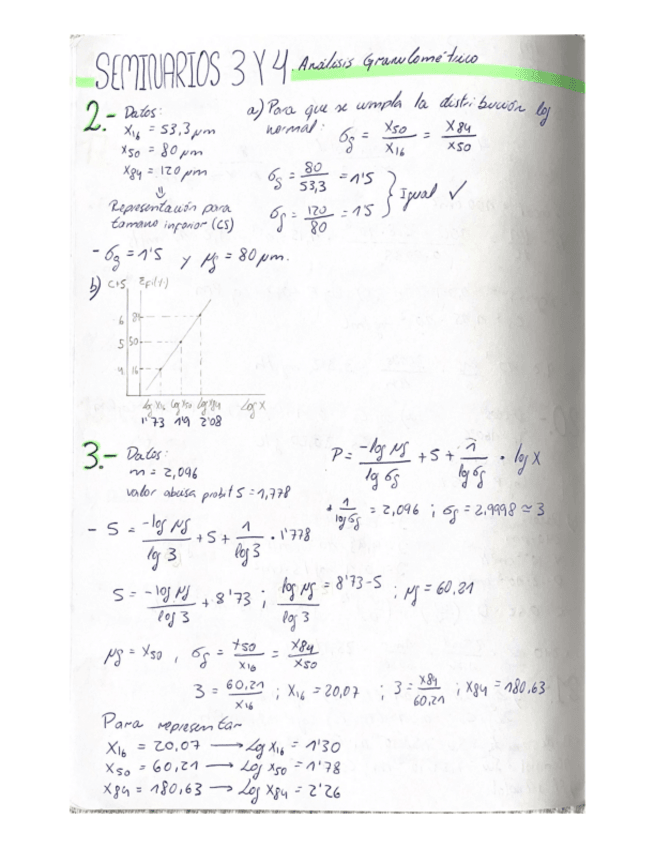 SEMINARIOS 3 Y 4. Análisis Granulométrico
2.- Datos:
X16 = 53,3 μm
X50 = 80 μm
X84 = 120 μm
⇓
Representación para
tamaño inferior (CS)
a) Para que se cumpla la distribución log
normal: σg = X50/X16 = X84/X50
σg = 80/53,3 = 1'5
σg = 120/80 = 1'5 } Igual ✓
- σg = 1'5 y μg = 80 μm.
b) C+S
6 84
5 50
4 16
Log X16 Log X50 Log X84 Log X
1'73 1'9 2'08
3.- Datos:
m = 2,096
valor abcisa probit 5 = 1,778
P = -log μg/log σg + 5 + 1/log σg · log X
1/log σg = 2,096 ; σg = 2,9998 ≃ 3
- 5 = -log μg/log 3 + 5 + 1/log 3 · 1'778
5 = -log μg/log 3 + 8'73 ; log μg/log 3 = 8'73-5 ; μg = 60,21
μg = X50 , σg = X50/X16 = X84/X50
3 = 60,21/X16 ; X16 = 20,07 ; 3 = X84/60,21 ; X84 = 180,63
Para representar
X16 = 20,07 → Log X16 = 1'30
X50 = 60,21 → Log X50 = 1'78
X84 = 180,63 → Log X84 = 2'26